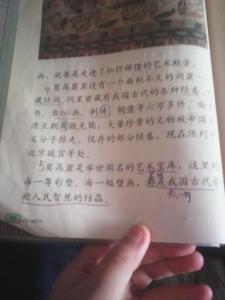 画，就像是走进了灿烂辉煌的艺术殿堂。
4.莫高窟里还有一个面积不大的洞窟——
藏经洞。洞里曾藏有我国古代的各种经卷、
帛画、刺绣、铜像等六万多件。由
清王朝腐败无能，大量珍贵的文物被帝国
义分子掠走。仅存的部分经卷，现在陈列
北京故宫等处。
5莫高窟是举世闻名的艺术宝库。这里的
每一尊彩塑、每一幅壁画，都是我国古代
动人民智慧的结晶。